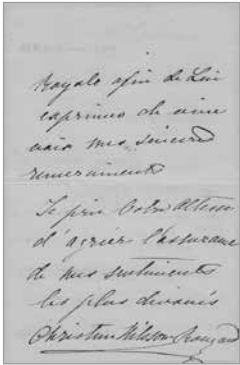 Royale afin de Lui
exprimer de vive
voix mes sincères
remerciments
Je prie Votre Altesse
d'agréer l'assurance
de mes sentiments
les plus dévoués
Christine Nilsson Rouzaud